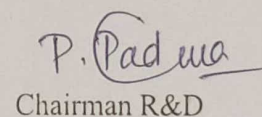 P. Padma
Chairman R&D